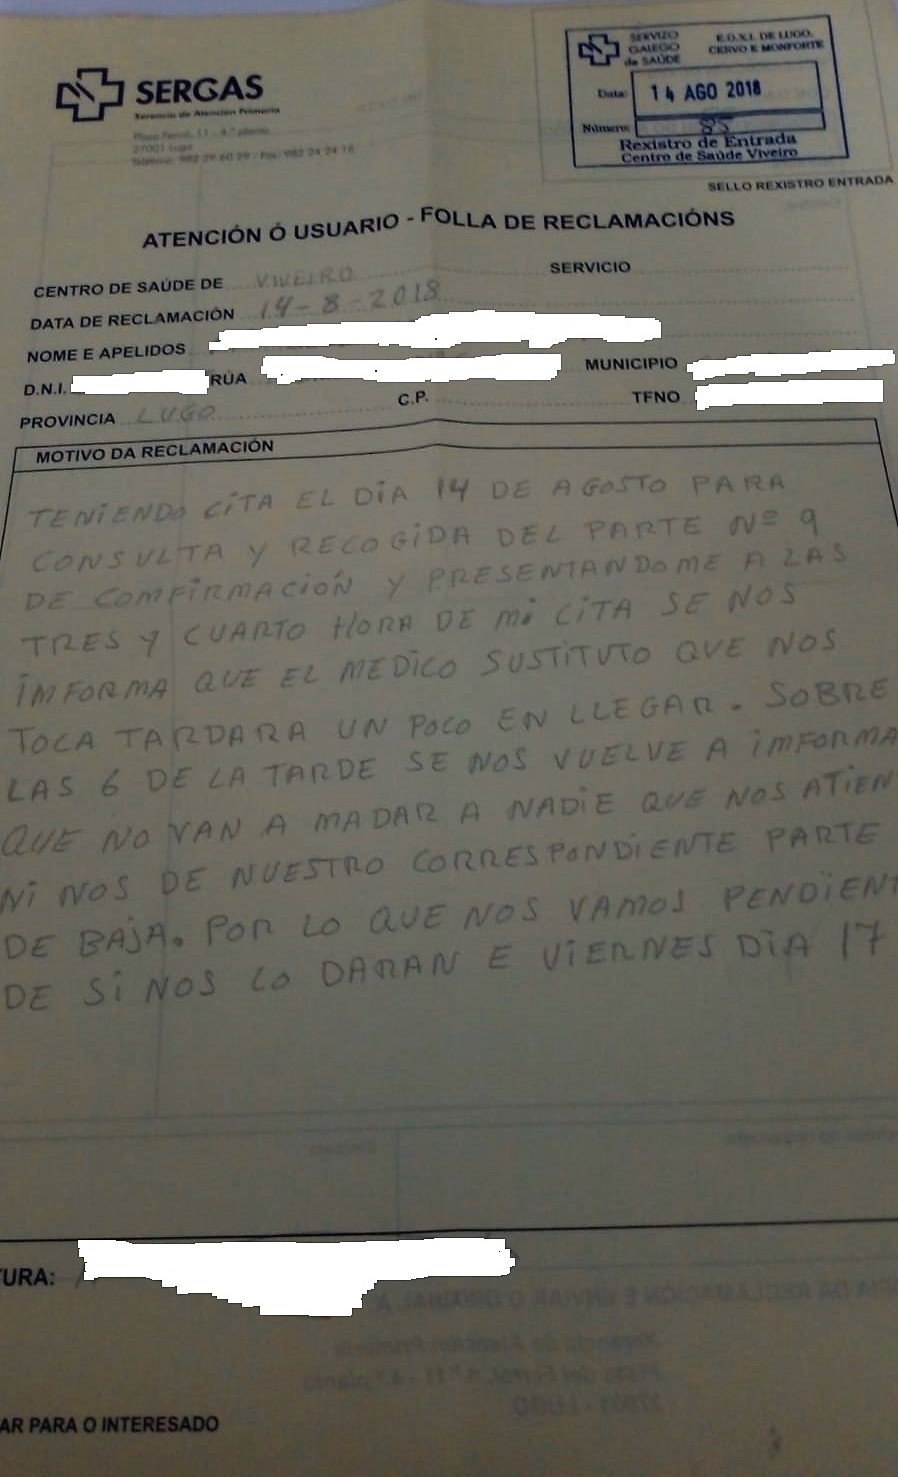 SERGAS
Xerencia de Atención Primaria
Praza Ferrol, 11 - 4.ª planta
27001 Lugo
SERVIZO
GALEGO
de SAÚDE
E.O.X.I. DE LUGO,
CERVO E MONFORTE
Data: 14 AGO 2018
Número: 85
Rexistro de Entrada
Centro de Saúde Viveiro
SELLO REXISTRO ENTRADA
ATENCIÓN Ó USUARIO - FOLLA DE RECLAMACIÓNS
CENTRO DE SAÚDE DE VIVEIRO SERVICIO
DATA DE RECLAMACIÓN 14-8-2018
NOME E APELIDOS
D.N.I. RÚA MUNICIPIO
PROVINCIA LUGO C.P. TFNO
MOTIVO DA RECLAMACIÓN
TENIENDO CITA EL DIA 14 DE AGOSTO PARA
CONSULTA Y RECOGIDA DEL PARTE Nº 9
DE COMFIRMACIÓN Y PRESENTANDOME A LAS
TRES Y CUARTO HORA DE MI CITA SE NOS
IMFORMA QUE EL MEDICO SUSTITUTO QUE NOS
TOCA TARDARA UN POCO EN LLEGAR. SOBRE
LAS 6 DE LA TARDE SE NOS VUELVE A IMFORMA
QUE NO VAN A MADAR A NADIE QUE NOS ATIEN
NI NOS DE NUESTRO CORRESPONDIENTE PARTE
DE BAJA. POR LO QUE NOS VAMOS PENDIENT
DE SI NOS LO DARAN E VIERNES DIA 17
TURA:
AR PARA O INTERESADO